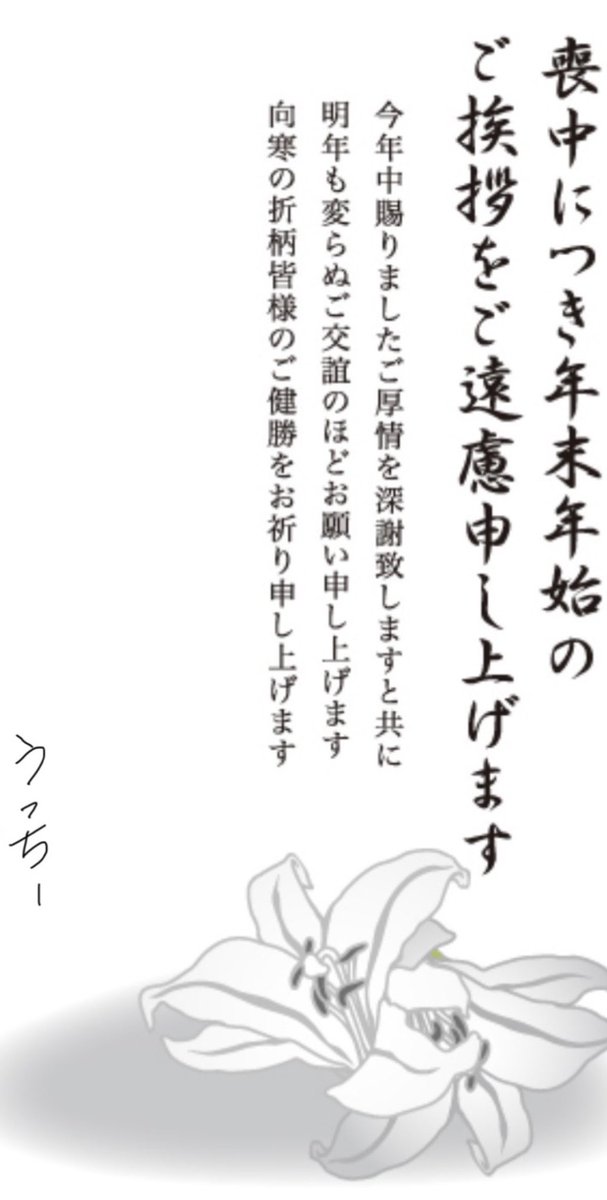 喪中につき年末年始の
ご挨拶をご遠慮申し上げます
今年中賜りましたご厚情を深謝致しますと共に
明年も変らぬご交誼のほどお願い申し上げます
向寒の折柄皆様のご健勝をお祈り申し上げます
うっちー